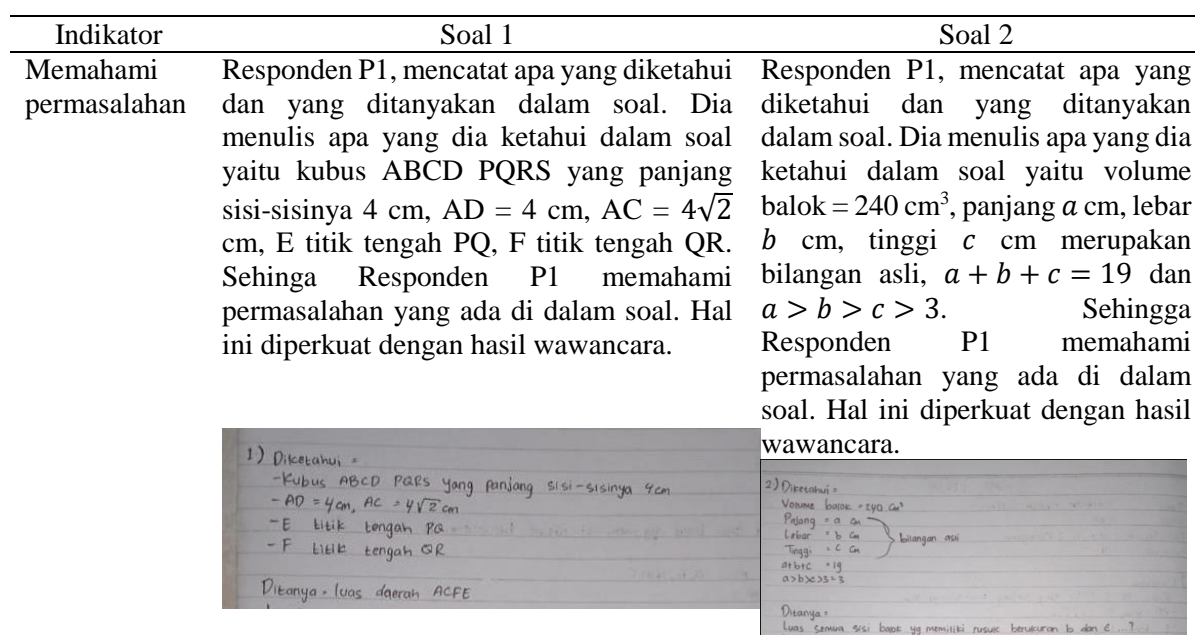 Indikator Soal 1 Soal 2
Memahami
permasalahan
Responden P1, mencatat apa yang diketahui
dan yang ditanyakan dalam soal. Dia
menulis apa yang dia ketahui dalam soal
yaitu kubus ABCD PQRS yang panjang
sisi-sisinya 4 cm, AD = 4 cm, AC = 4√2
cm, E titik tengah PQ, F titik tengah QR.
Sehinga Responden P1 memahami
permasalahan yang ada di dalam soal. Hal
ini diperkuat dengan hasil wawancara.
1) Diketahui =
-Kubus ABCD PQRS yang panjang sisi-sisinya 4cm
- AD = 4cm, AC = 4√2 cm
-E titik tengah PQ
- F titik tengah QR
Ditanya = luas daerah ACFE
Responden P1, mencatat apa yang
diketahui dan yang ditanyakan
dalam soal. Dia menulis apa yang dia
ketahui dalam soal yaitu volume
balok = 240 cm³, panjang a cm, lebar
b cm, tinggi c cm merupakan
bilangan asli, a + b + c = 19 dan
a > b > c > 3. Sehingga
Responden P1 memahami
permasalahan yang ada di dalam
soal. Hal ini diperkuat dengan hasil
wawancara.
2) Diketahui =
Volume balok = 240 cm³
Pajang = a cm
Lebar = b cm
Tinggi = c cm
bilangan asli
a+b+c = 19
a>b>c>3
Ditanya =
Luas semua sisi balok yg memiliki rusuk berukuran b dan c ...?